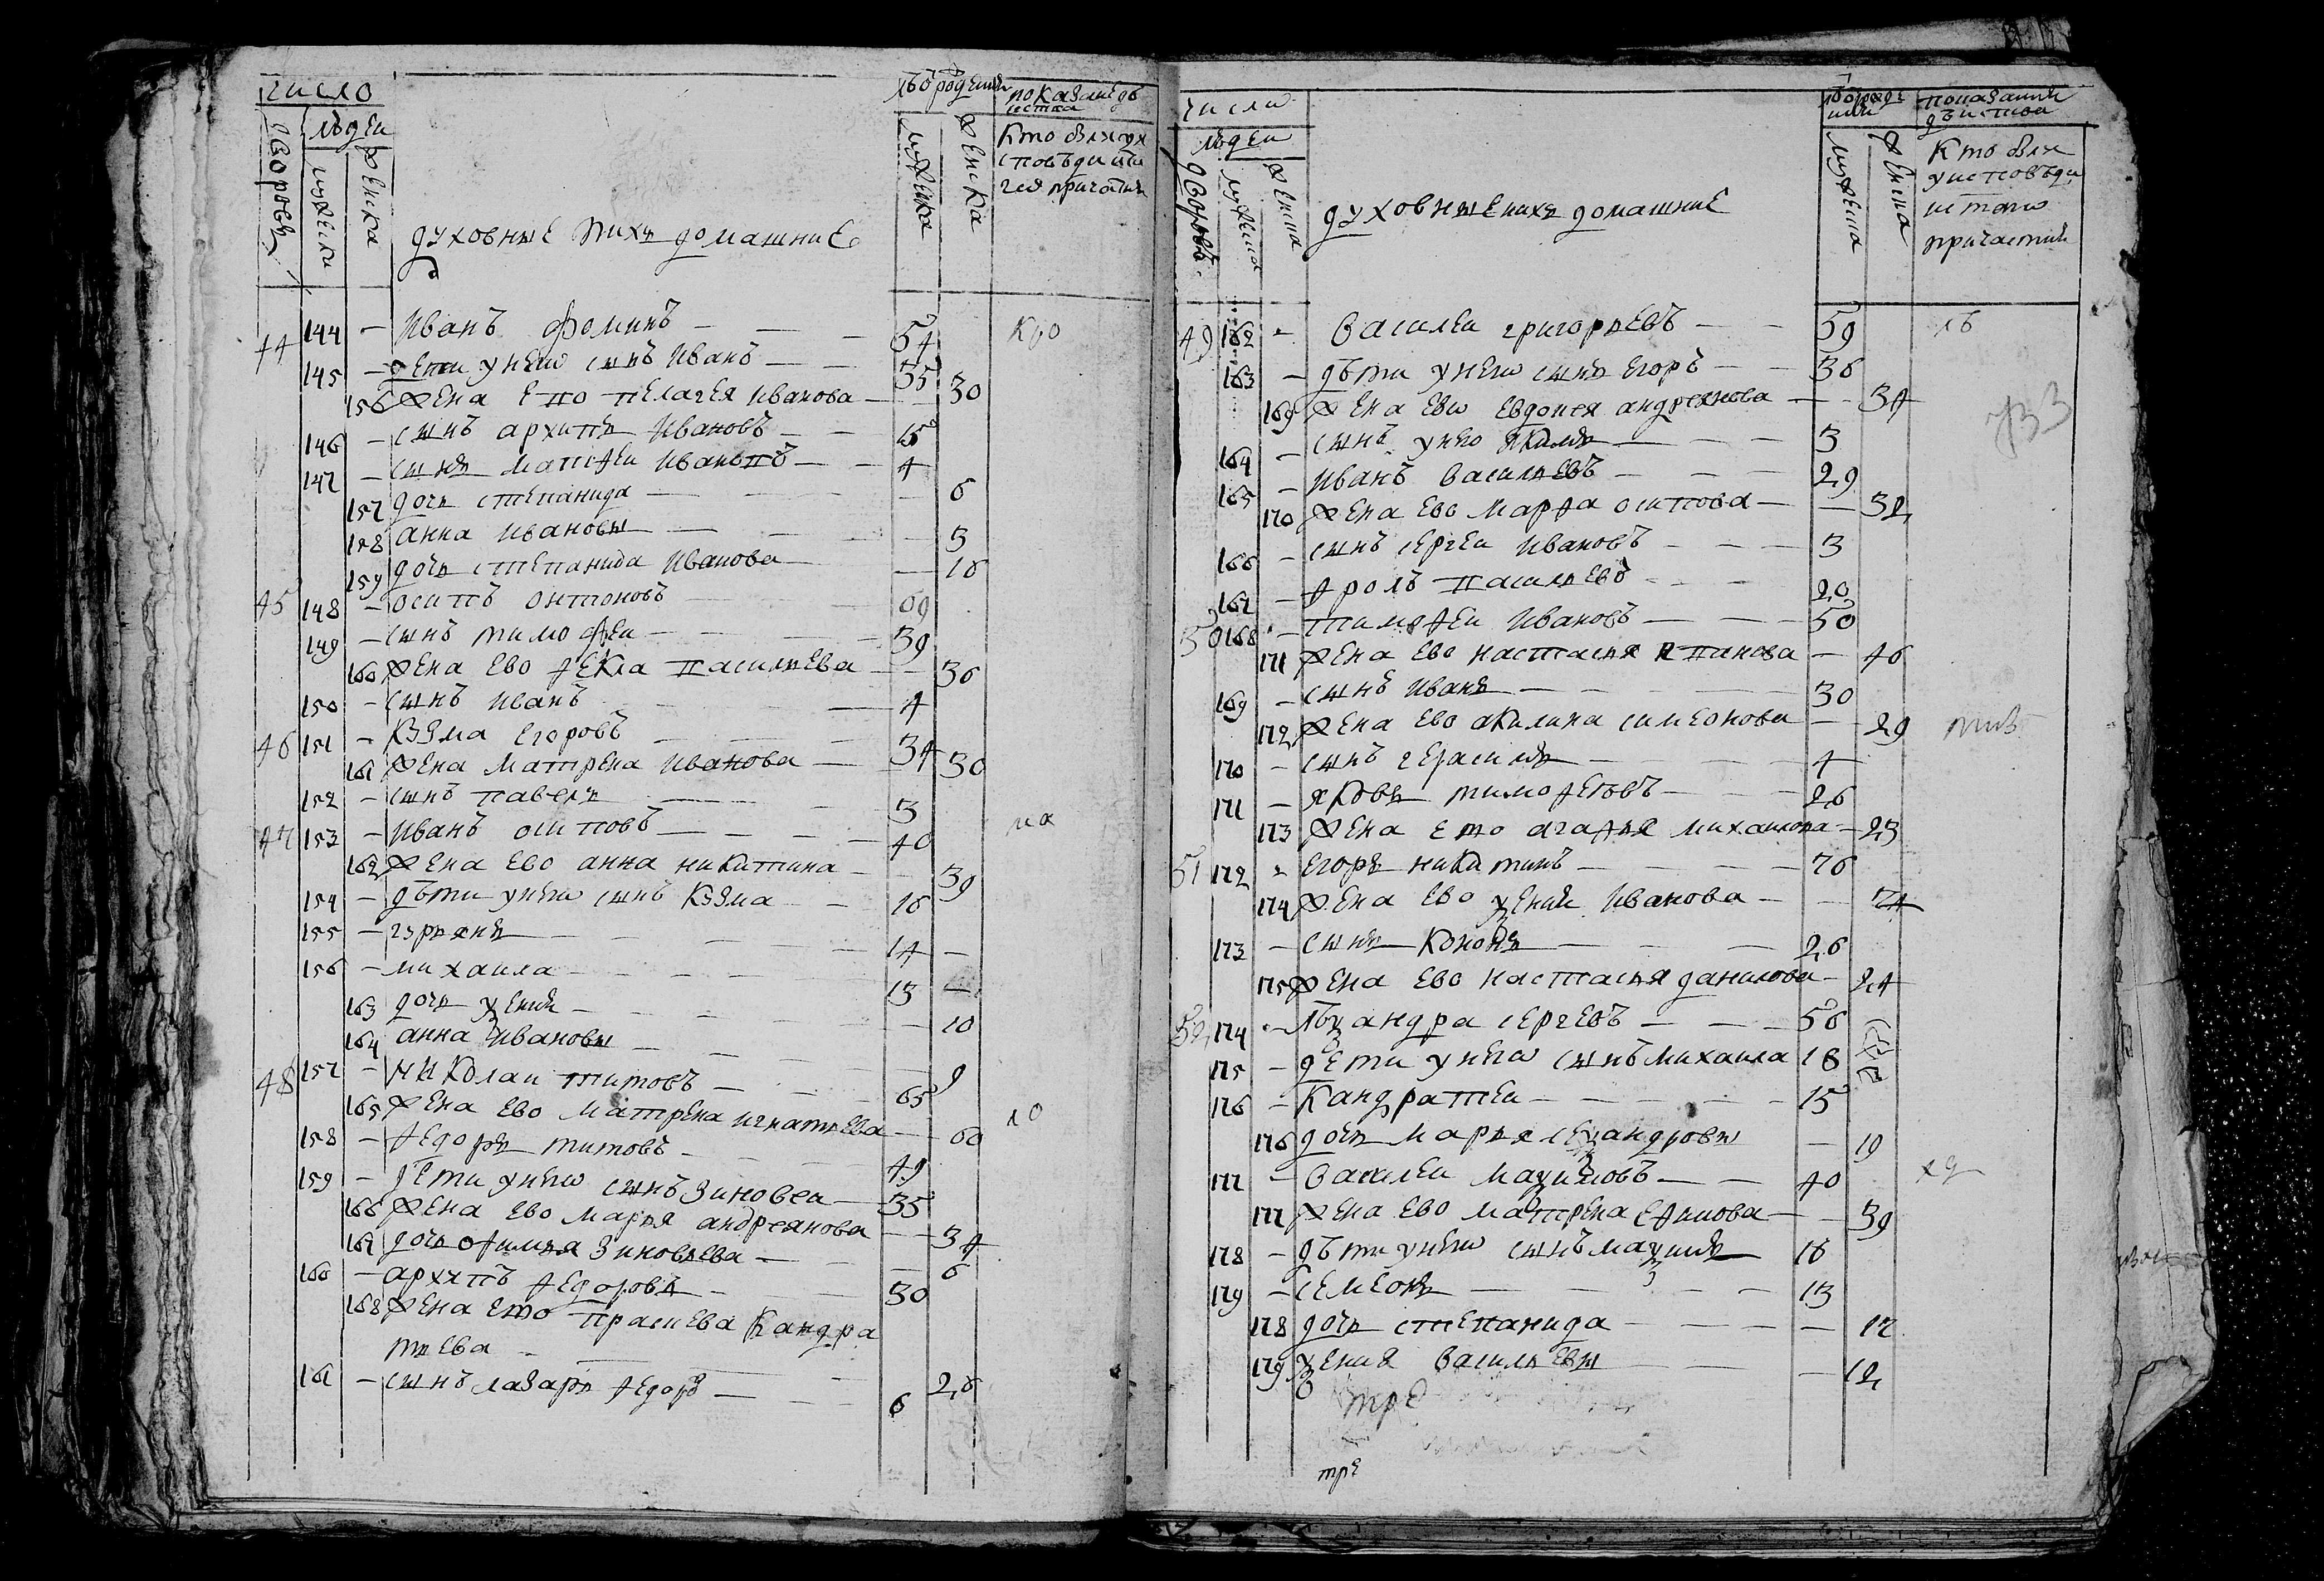 число
лѣта ѿ рождения
показание дѣиства
дворовъ
людеи
мужеска
женска
духовные и ихъ домашние
мужеска
женска
кто были у исповѣди и ст҃аго причастия
44 144 – Иванъ Фоминъ – 54
145 – дети у него сынъ Иванъ – 35
156 жена ево Пелагея Иванова – 30
146 – сынъ Архипъ Ивановъ – 15
147 – сынъ Матфеи Ивановъ – 4
157 дочь Степанида – 6
158 Анна Ивановы – 3
159 дочь Степанида Иванова – 16
45 148 – Осипъ Онтоновъ – 69
149 – сынъ Тимофеи – 39
160 жена ево Фекла Васильева – 36
150 – сынъ Иванъ – 4
46 151 – Кузма Егоровъ – 34
161 жена Матрена Иванова – 30
152 – сынъ Павелъ – 3
47 153 – Иванъ Осиповъ – 40
162 жена ево Анна Никитина – 39
154 – дѣти у него сынъ Кузма – 16
155 – Гурьянъ – 14
156 – Михаила – 13
163 дочь Ѯения – 10
164 Анна Ивановы – 9
48 157 – Николаи Титовъ – 65
165 жена ево Матрена Игнатьева – 60
158 – Федоръ Титовъ – 49
159 – дети у него сынъ Зиновеи – 35
166 жена ево Марья Андреянова – 34
167 дочь Офимья Зиновьева – 6
160 – Архипъ Федоровъ – 30
168 жена ево Прасковья Кандра
тьева – 26
161 – сынъ Лазарь Федоръ – 6
числи
людеи
дворовъ
мужеска
женска
духовные и ихъ домашние
мужеска
женска
кто были
у исповѣди
и ст҃аго
причастия
49 162 – Василеи Григорьевъ – 59
163 – дѣти у него сынъ Егоръ – 36
169 жена ево Евдокея Андреянова – 34
164 – сынъ у него Якимъ – 3
165 – Иванъ Васильевъ – 29
170 жена ево Марфа Осипова – 32
166 – сынъ Сергеи Ивановъ – 3
167 – Фролъ Васильевъ – 20
50 168 – Тимофеи Ивановъ – 50
171 жена ево Настасья – 46
169 – сынъ Иванъ – 30
172 жена ево Акилина Симеонова – 29
170 – сынъ Герасимъ – 4
171 – Яковъ Тимофеевъ – 26
173 жена ево Агафья Михаилова – 23
51 172 – Егоръ Никитинъ – 76
174 жена ево Ѯения Иванова – 74
173 – сынъ Кононъ – 26
175 жена ево Настасья Данилова – 24
52 174 – Сергеевъ – 56
175 – дети у него сынъ Михаила 18
176 – Кандратеи – 15
176 дочь Марья – 19
177 – Василеи Маѯимовъ – 40
177 жена ево Матрена Ефимова – 39
178 – дѣти у него сынъ Маѯимъ 16
179 – Семеонъ – 13
178 дочь Степанида – 17
179 Ѯения Васильевы – 12
тре
тре